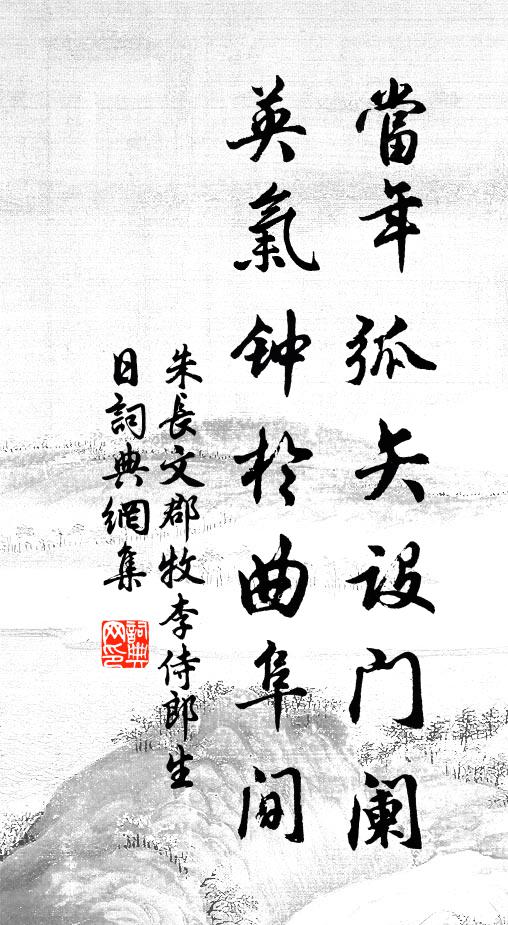 當年弧矢設门阑
英氣钟於曲阜間
朱長文郡牧李侍郎生
日詞典網集
詞典
网印